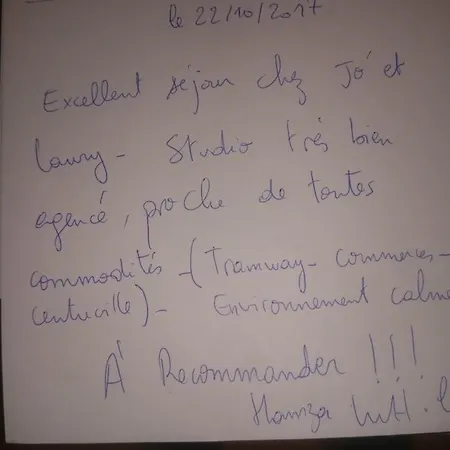 le 22/10/2017
Excellent séjour chez Jó et
Laury - Studio trés bien
agencé, proche de toutes
commodités - (Tramway - Commerces -
Centreville) - Environnement calme
À Recommander !!!
Hamza